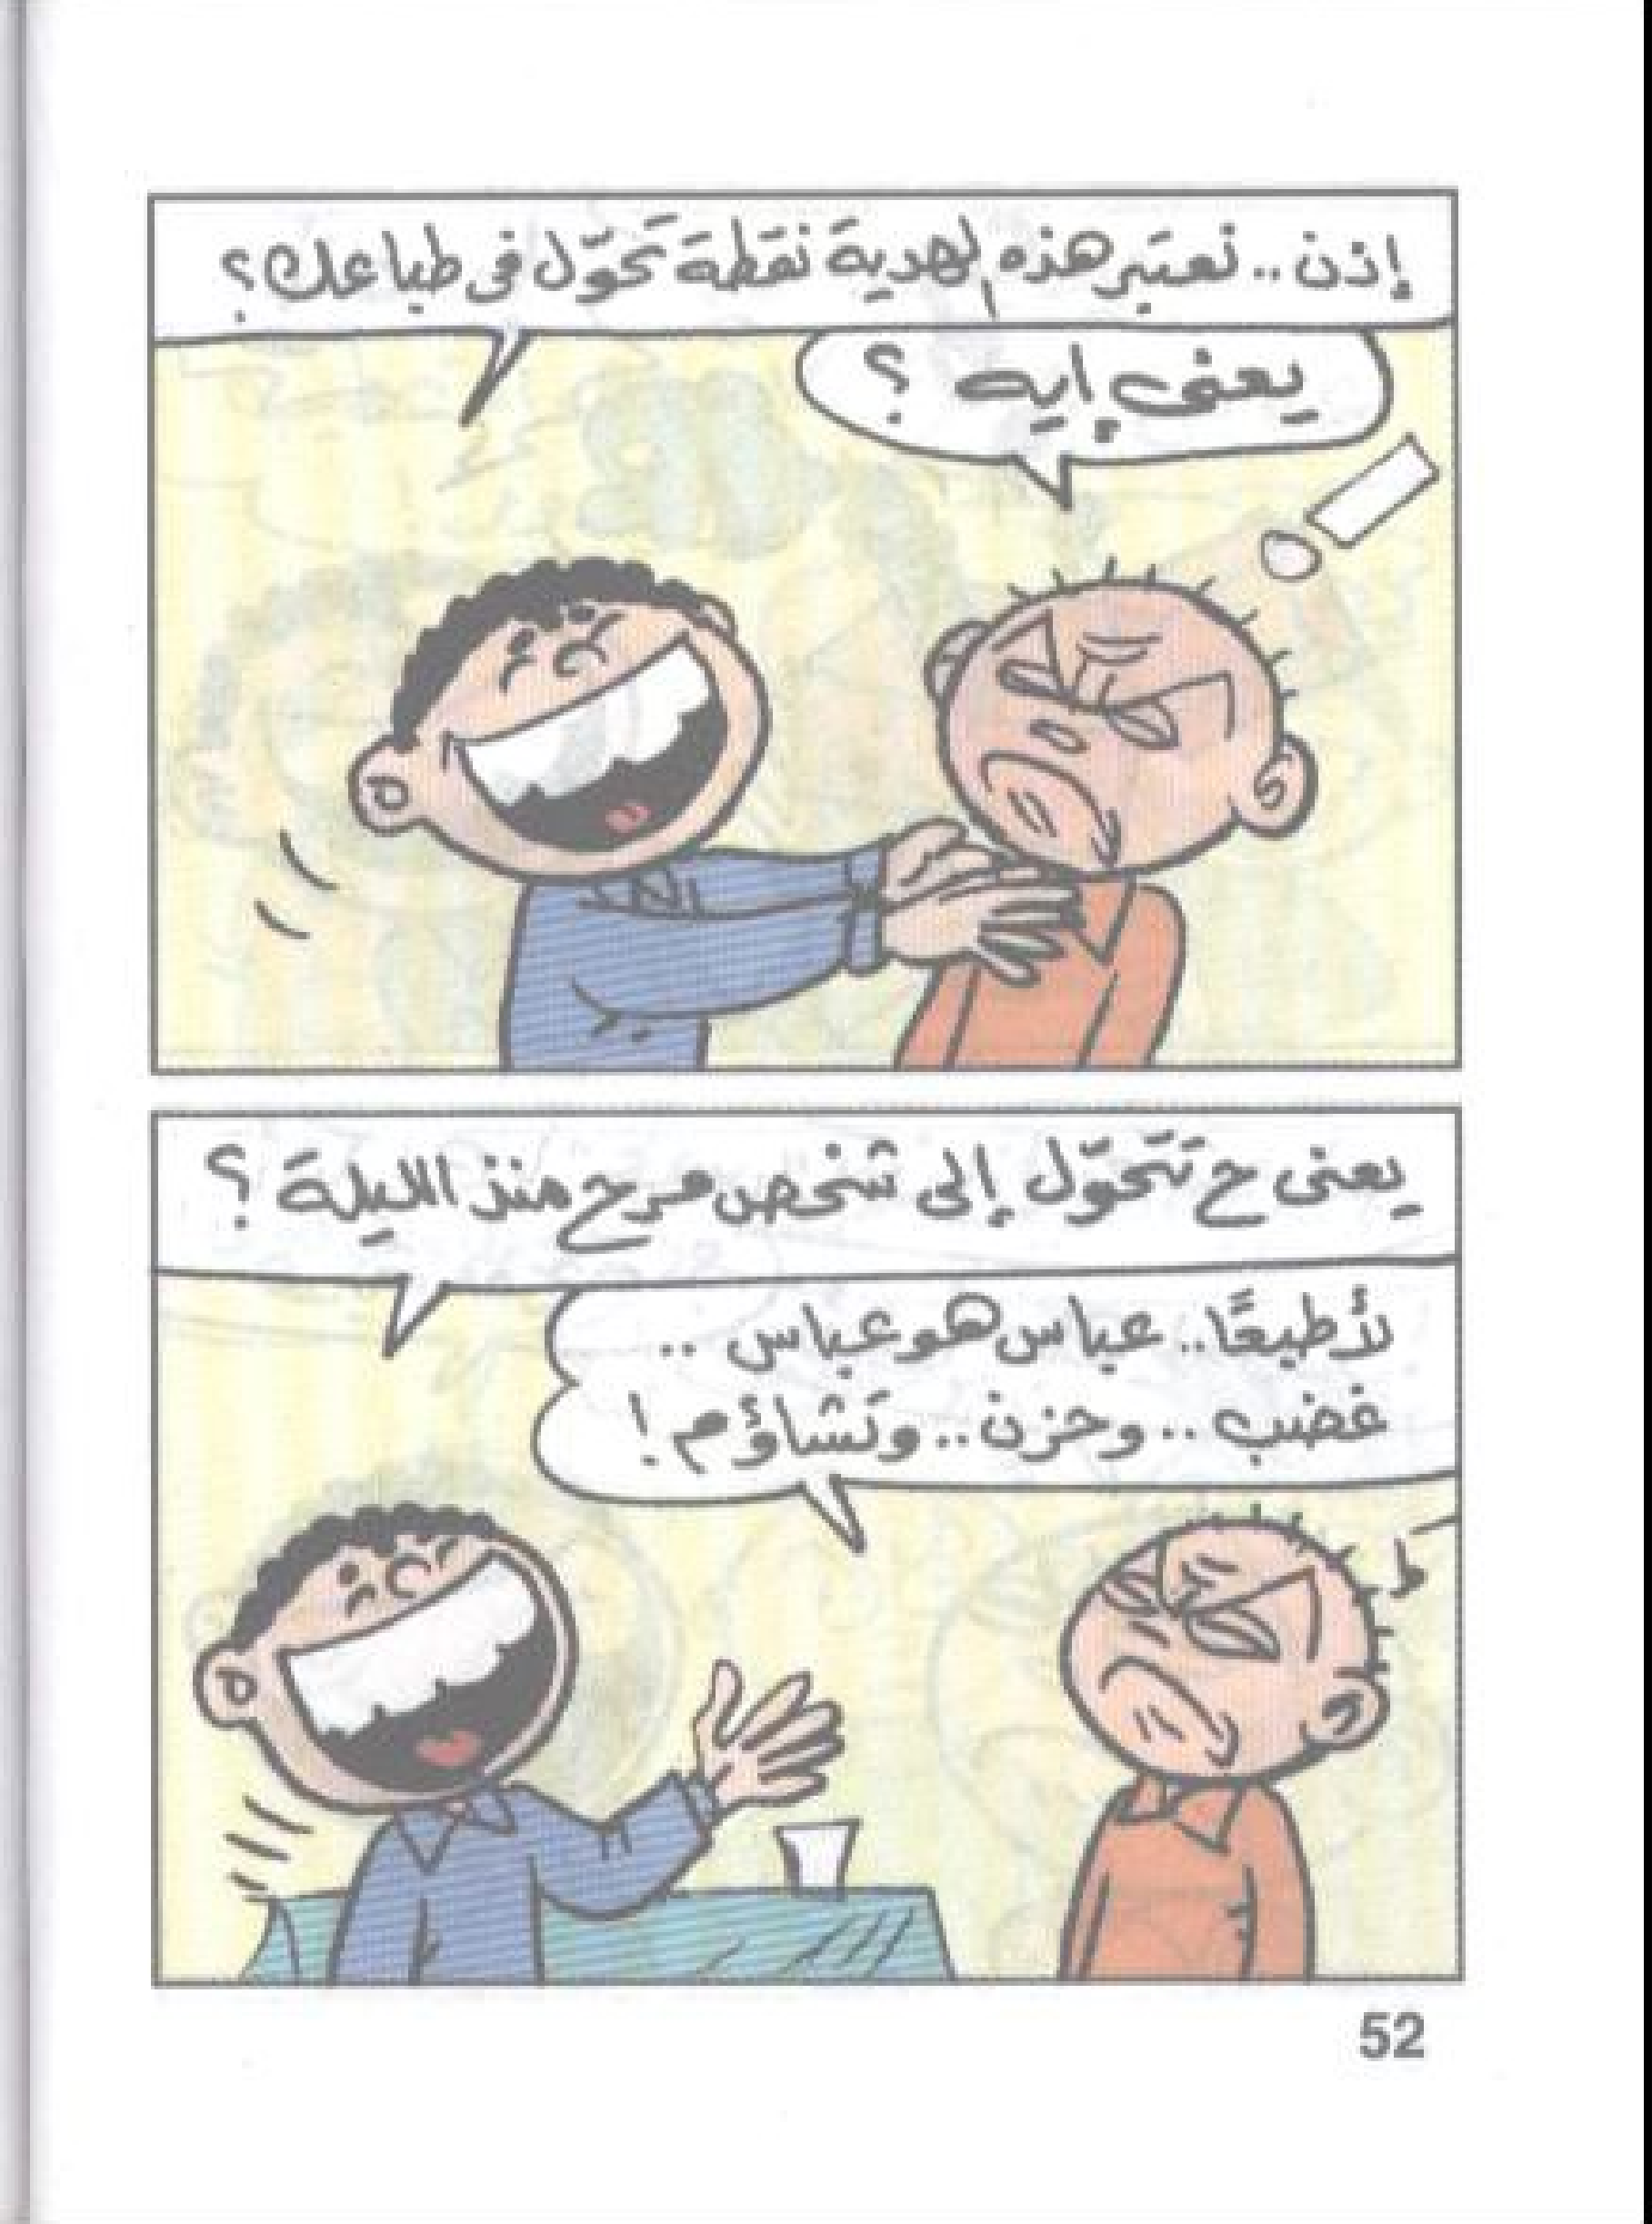 إذن.. نعتبر هذه الهدية نقطة تحوّل فى طباعك؟
يعنى إيه ؟
يعنى ح تتحوّل إلى شخص مرح منذ الليلة ؟
لأ طبعًا.. عباس هو عباس ..
غضب .. وحزن .. وتشاؤم !
ط
52